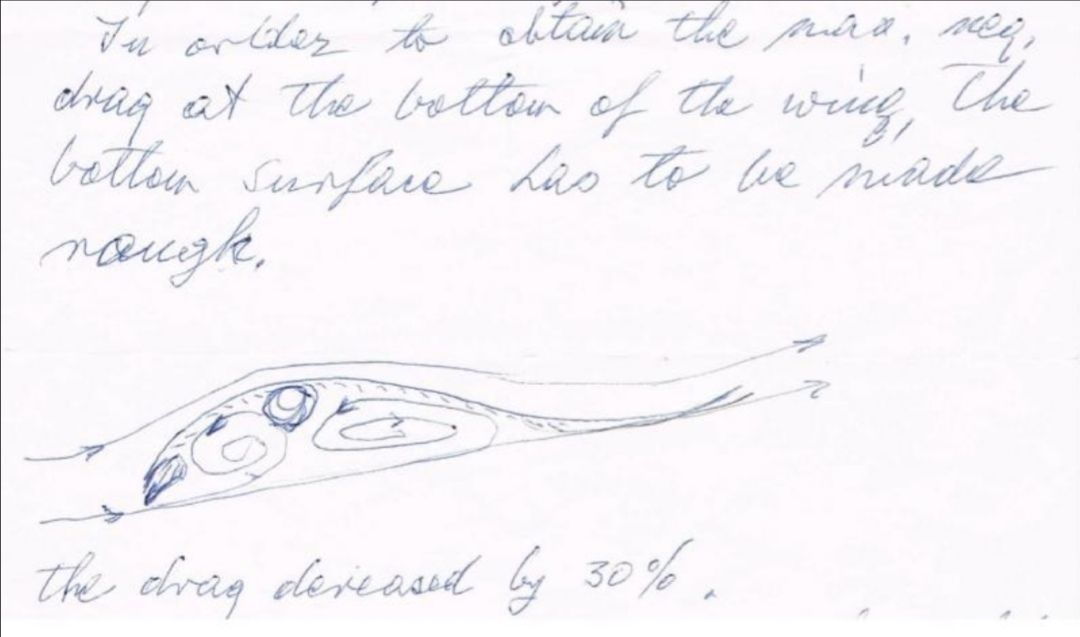 In order to obtain the max. neg.
drag at the bottom of the wing, the
bottom surface has to be made
rough.
the drag decreased by 30%.